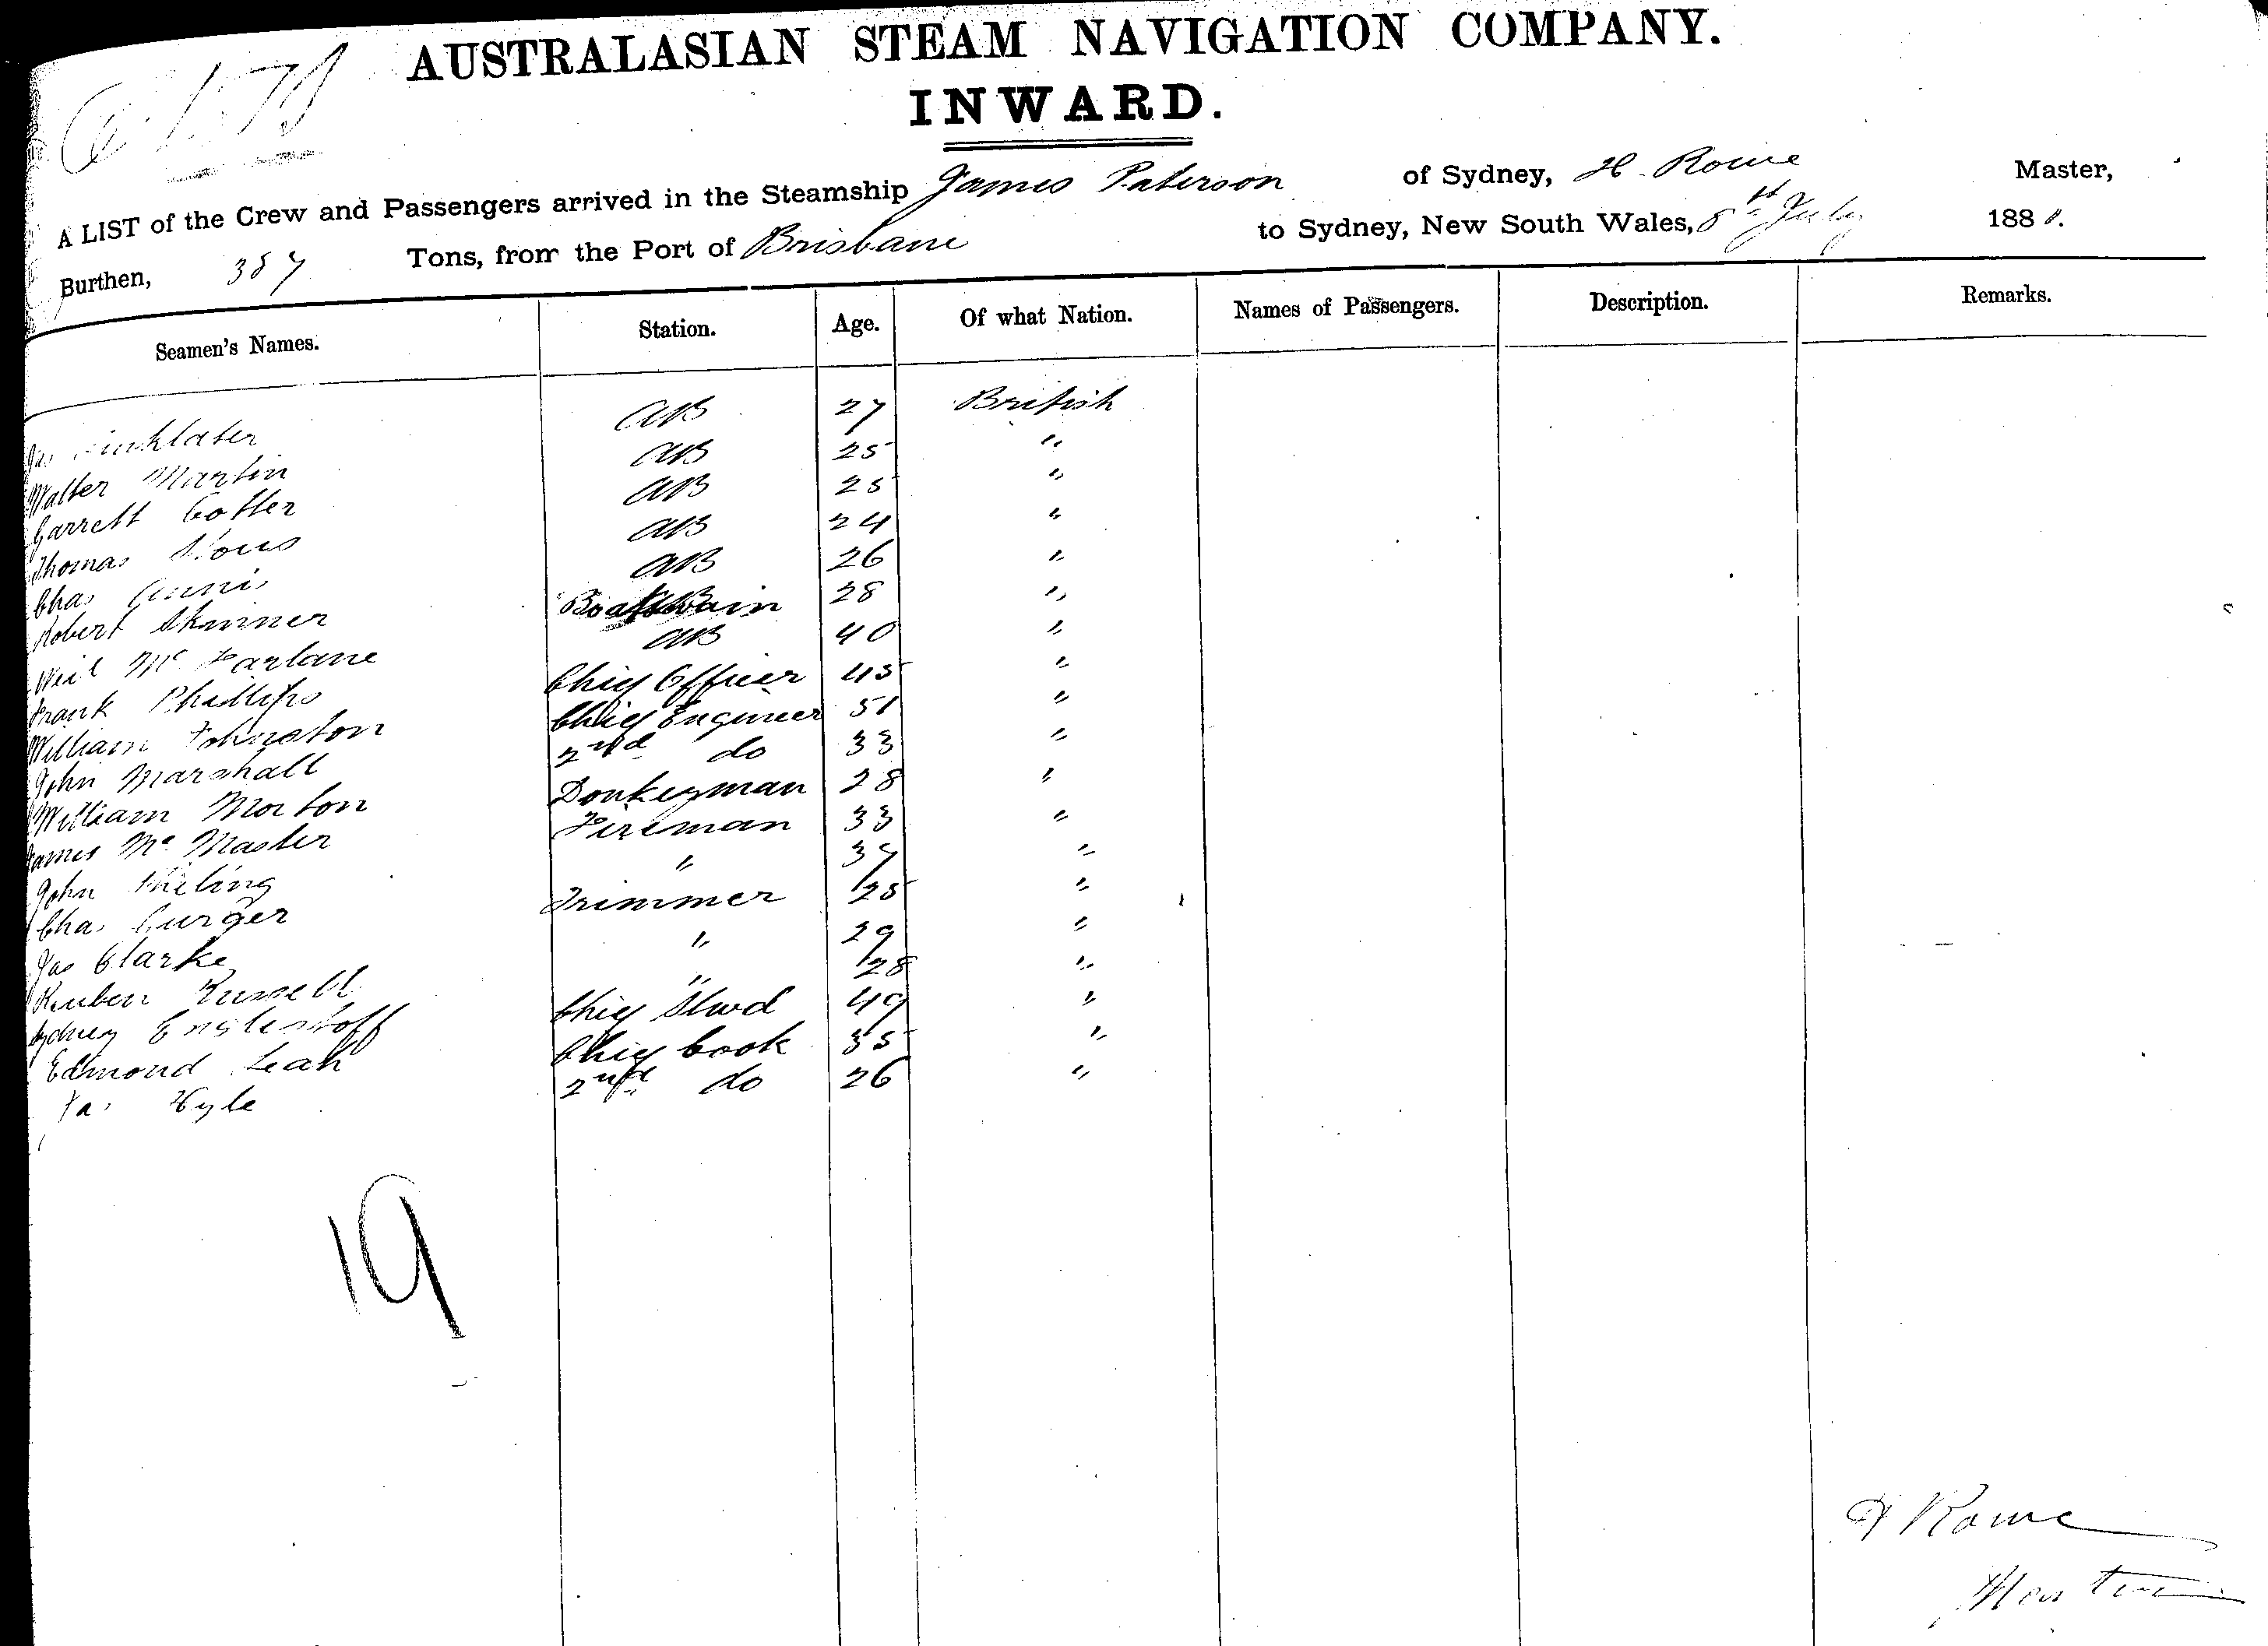 AUSTRALASIAN STEAM NAVIGATION COMPANY.
INWARD.
A LIST of the Crew and Passengers arrived in the Steamship James Paterson of Sydney, H. Rowe Master,
Burthen, 387 Tons, from the Port of Brisbane to Sydney, New South Wales, July 188
Seamen's Names. Station. Age. Of what Nation. Names of Passengers. Description. Remarks.
Jas AB 27 British
Walter Martin AB 25 "
Garrett Cotter AB 25 "
Thomas AB 24 "
Chas AB 26 "
Robert Skinner Boatswain 28 "
Neil Mc Farlane AB 40 "
Frank Phillips Chief Officer 45 "
William Johnston Chief Engineer 51 "
John Marshall 2nd do 33 "
William Morton Donkeyman 28 "
James Mc Master Fireman 33 "
John " 37 "
Chas Trimmer 25 "
Jas Clarke " 29 "
Reuben Russell " 28 "
Sydney Chief Stwd 49 "
Edmond Leah Chief Cook 35 "
Jas 2nd do 26 "
19
H Rowe
Master